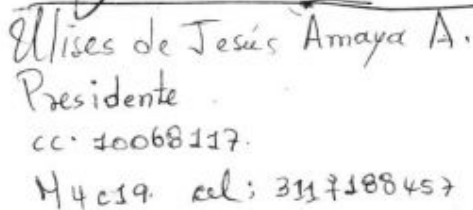 Ulises de Jesús Amaya A.
Presidente
cc. 10068117.
M4c19. cel; 3117188457